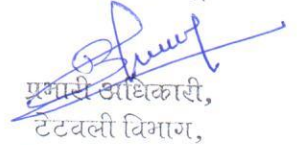 प्रभारी अधिकारी,
टेटवली विभाग,